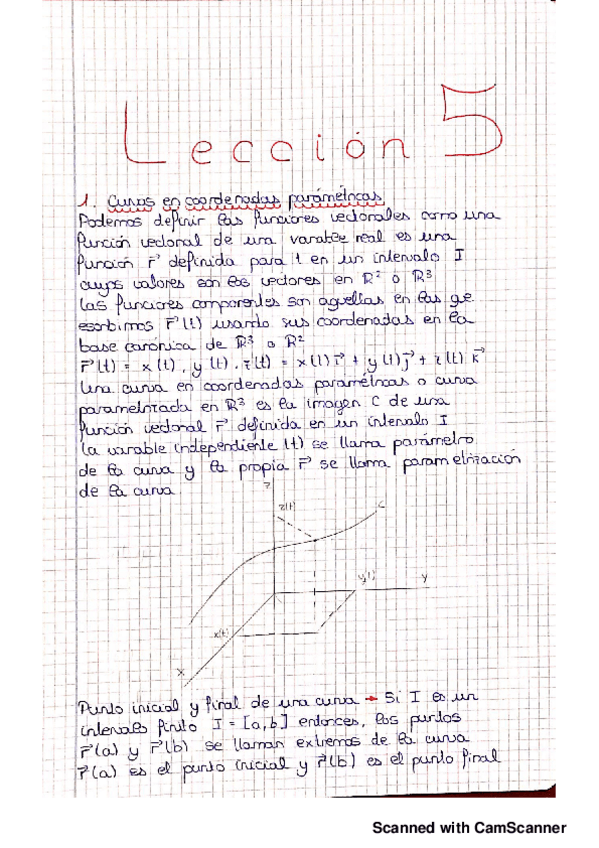 Lección 5
1. Curvas en coordenadas paramétricas
Podemos definir las funciones vectoriales como una
función vectorial de una variable real es una
función r⃗ definida para t en un intervalo I
cuyos valores son los vectores en R² o R³
Las funciones componentes son aquellas en las que
escribimos r⃗(t) usando sus coordenadas en la
base canónica de R³ o R²
r⃗(t) = x(t), y(t), z(t) = x(t)i⃗ + y(t)j⃗ + z(t)k⃗
Una curva en coordenadas paramétricas o curva
parametrizada en R³ es la imagen C de una
función vectorial r⃗ definida en un intervalo I
La variable independiente (t) se llama parámetro
de la curva y la propia r⃗ se llama parametrización
de la curva
z
z(t)
C
y(t)
y
x(t)
x
Punto inicial y final de una curva → Si I es un
intervalo finito I = [a,b] entonces, los puntos
r⃗(a) y r⃗(b) se llaman extremos de la curva
r⃗(a) es el punto inicial y r⃗(b) es el punto final
Scanned with CamScanner